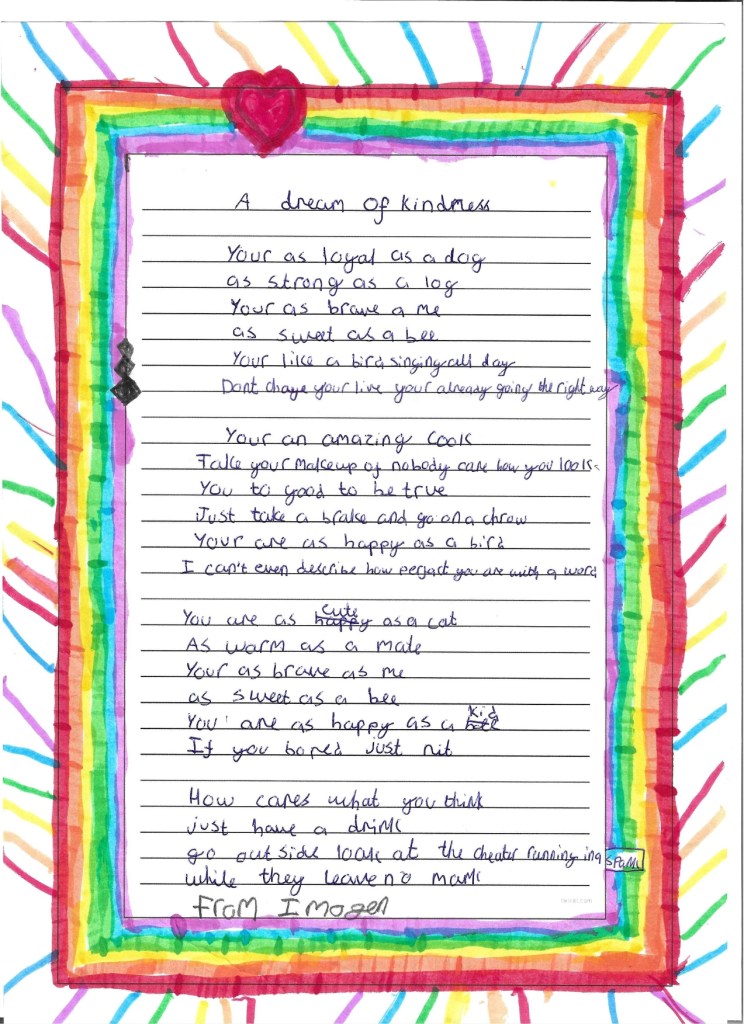 A dream of kindness
Your as loyal as a dog
as strong as a log
Your as brave a me
as sweet as a bee
Your like a bird singing all day
Dont change your live your already going the right way
Your an amazing cook
Take your makeup of nobody care how you look.
You to good to be true
Just take a brake and go on a chrow
Your are as happy as a bird
I can't even describe how perfact you are with a word
You are as happy cute as a cat
As warm as a mate
Your as brave as me
as sweet as a bee
You are as happy as a kid
If you bored just nit
How cares what you think
just have a drink
go outside look at the cheater running in a spark
while they leave no mark
From Imogen